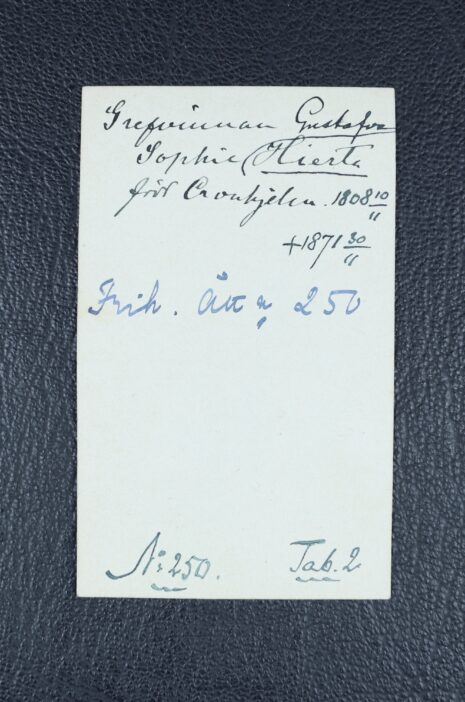 Grefvinnan Gustafva
Sophie Hierta
född Cronhjelm. 1808 10/11
+1871 30/11
Frih. Ätt n 250
N: 250.
Tab. 2